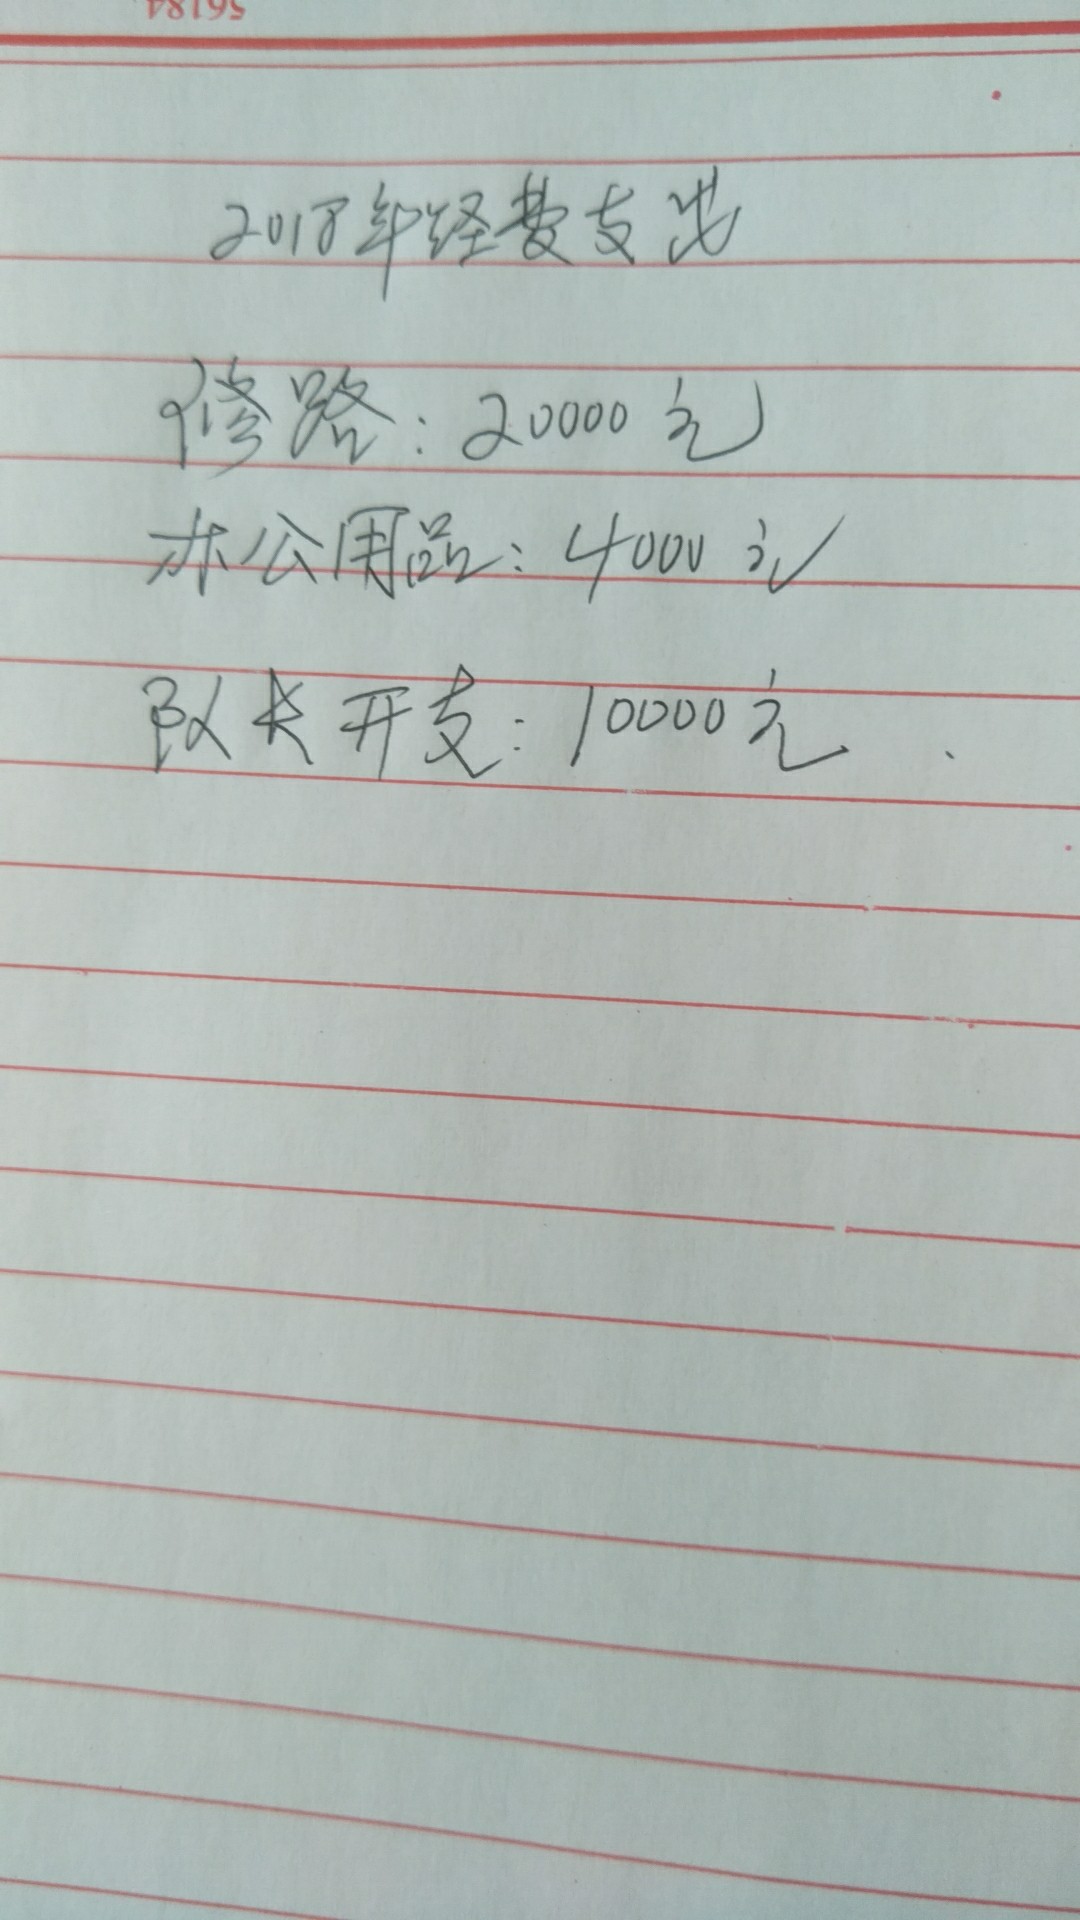 56184
2018年经费支出
修路：20000元
办公用品：4000元
队长开支：10000元